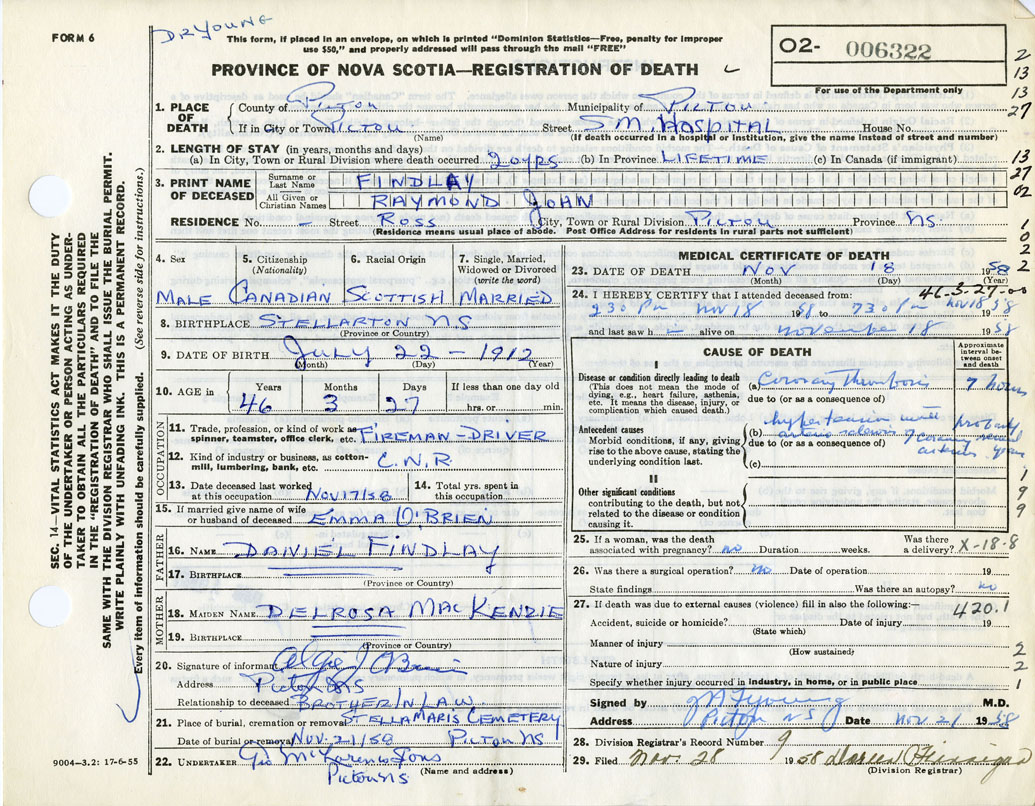 FORM 6
DR YOUNG
This form, if placed in an envelope, on which is printed "Dominion Statistics—Free, penalty for improper
use $50," and properly addressed will pass through the mail "FREE"
PROVINCE OF NOVA SCOTIA—REGISTRATION OF DEATH
O2- 006322
For use of the Department only
2
13
13
27
1. PLACE OF DEATH
County of Pictou Municipality of Pictou
If in City or Town Pictou Street S.M. Hospital House No.
(Name) (If death occurred in a hospital or institution, give the name instead of street and number)
2. LENGTH OF STAY (in years, months and days)
(a) In City, Town or Rural Division where death occurred 20 yrs (b) In Province LIFETIME (c) In Canada (if immigrant)
13
27
02
3. PRINT NAME OF DECEASED
Surname or Last Name FINDLAY
All Given or Christian Names RAYMOND JOHN
RESIDENCE No. – Street ROSS City, Town or Rural Division PICTOU Province NS.
(Residence means usual place of abode. Post Office Address for residents in rural parts not sufficient)
1
2
2
2
SEC. 14—VITAL STATISTICS ACT MAKES IT THE DUTY
OF THE UNDERTAKER OR PERSON ACTING AS UNDER-
TAKER TO OBTAIN ALL THE PARTICULARS REQUIRED
IN THE "REGISTRATION OF DEATH" AND TO FILE THE
SAME WITH THE DIVISION REGISTRAR WHO SHALL ISSUE THE BURIAL PERMIT.
WRITE PLAINLY WITH UNFADING INK. THIS IS A PERMANENT RECORD.
Every item of information should be carefully supplied. (See reverse side for instructions.)
4. Sex 5. Citizenship (Nationality) 6. Racial Origin 7. Single, Married, Widowed or Divorced (write the word)
MALE CANADIAN SCOTTISH MARRIED
8. BIRTHPLACE STELLARTON N.S
(Province or Country)
9. DATE OF BIRTH July 22 – 1912
(Month) (Day) (Year)
10. AGE in Years Months Days If less than one day old
46 3 27 hrs. or min.
OCCUPATION
11. Trade, profession, or kind of work as
spinner, teamster, office clerk, etc. FIREMAN - DRIVER
12. Kind of industry or business, as cotton-
mill, lumbering, bank, etc. C.N.R
13. Date deceased last worked
at this occupation Nov 17/58
14. Total yrs. spent in
this occupation
15. If married give name of wife
or husband of deceased EMMA O'BRIEN
FATHER
16. NAME DANIEL FINDLAY
17. BIRTHPLACE
(Province or Country)
MOTHER
18. MAIDEN NAME DELROSA MACKENZIE
19. BIRTHPLACE
(Province or Country)
20. Signature of informant
Address Pictou NS
Relationship to deceased BROTHER IN LAW
21. Place of burial, cremation or removal STELLA MARIS CEMETERY
Date of burial or removal Nov. 21/58 Pictou NS
22. UNDERTAKER Geo McLaren & Sons
Pictou NS (Name and address)
9004—3.2: 17-6-55
MEDICAL CERTIFICATE OF DEATH
23. DATE OF DEATH Nov 18 1958
(Month) (Day) (Year)
46-3-27-00
24. I HEREBY CERTIFY that I attended deceased from:
230 Pm Nov 18 1958 to 730 Pm Nov 18 1958
and last saw h – alive on november 18 1958
CAUSE OF DEATH
Approximate interval between onset and death
I
Disease or condition directly leading to death
(This does not mean the mode of
dying, e.g., heart failure, asthenia,
etc. It means the disease, injury, or
complication which caused death.)
(a) Coronary Thrombosis 7 hours
due to (or as a consequence of)
Antecedent causes
Morbid conditions, if any, giving
rise to the above cause, stating the
underlying condition last.
(b) hypertension with arterio sclerosis of coronary arteries probably several years
due to (or as a consequence of)
(c)
II
Other significant conditions
contributing to the death, but not
related to the disease or condition
causing it.
1
9
9
25. If a woman, was the death
associated with pregnancy? no Duration weeks. Was there a delivery? X-18-8
26. Was there a surgical operation? no Date of operation 19
State findings Was there an autopsy? no
27. If death was due to external causes (violence) fill in also the following:—
420.1
Accident, suicide or homicide? Date of injury 19
(State which)
Manner of injury 2
(How sustained)
Nature of injury 2
Specify whether injury occurred in industry, in home, or in public place 1
Signed by M F Young M.D.
Address Pictou NS Date Nov. 21 1958
28. Division Registrar's Record Number 9
29. Filed Nov. 28 1958
(Division Registrar)